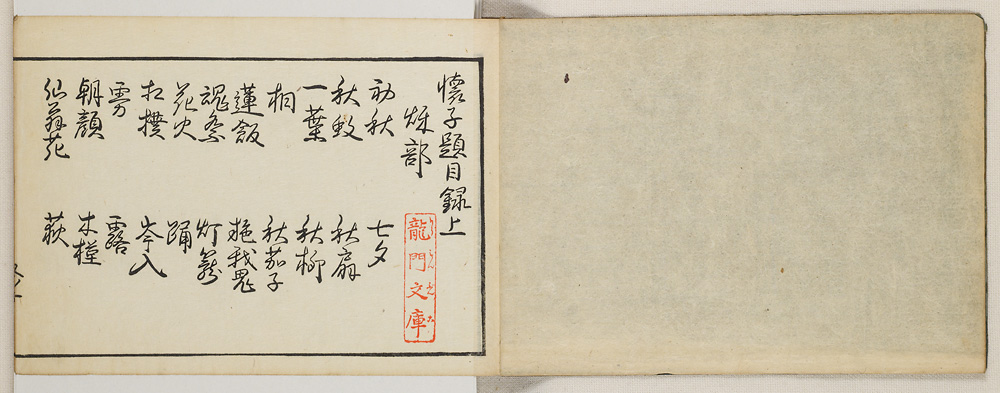 懐子題目録上
秌部
初秋 七夕
秋蚊 秋扇
一葉 秋柳
桐 秋茄子
蓮飯
魂祭 灯篭
花火 踊
相撲 峯入
雷 露
朝顔 木槿
仙翁花 萩
龍門文庫